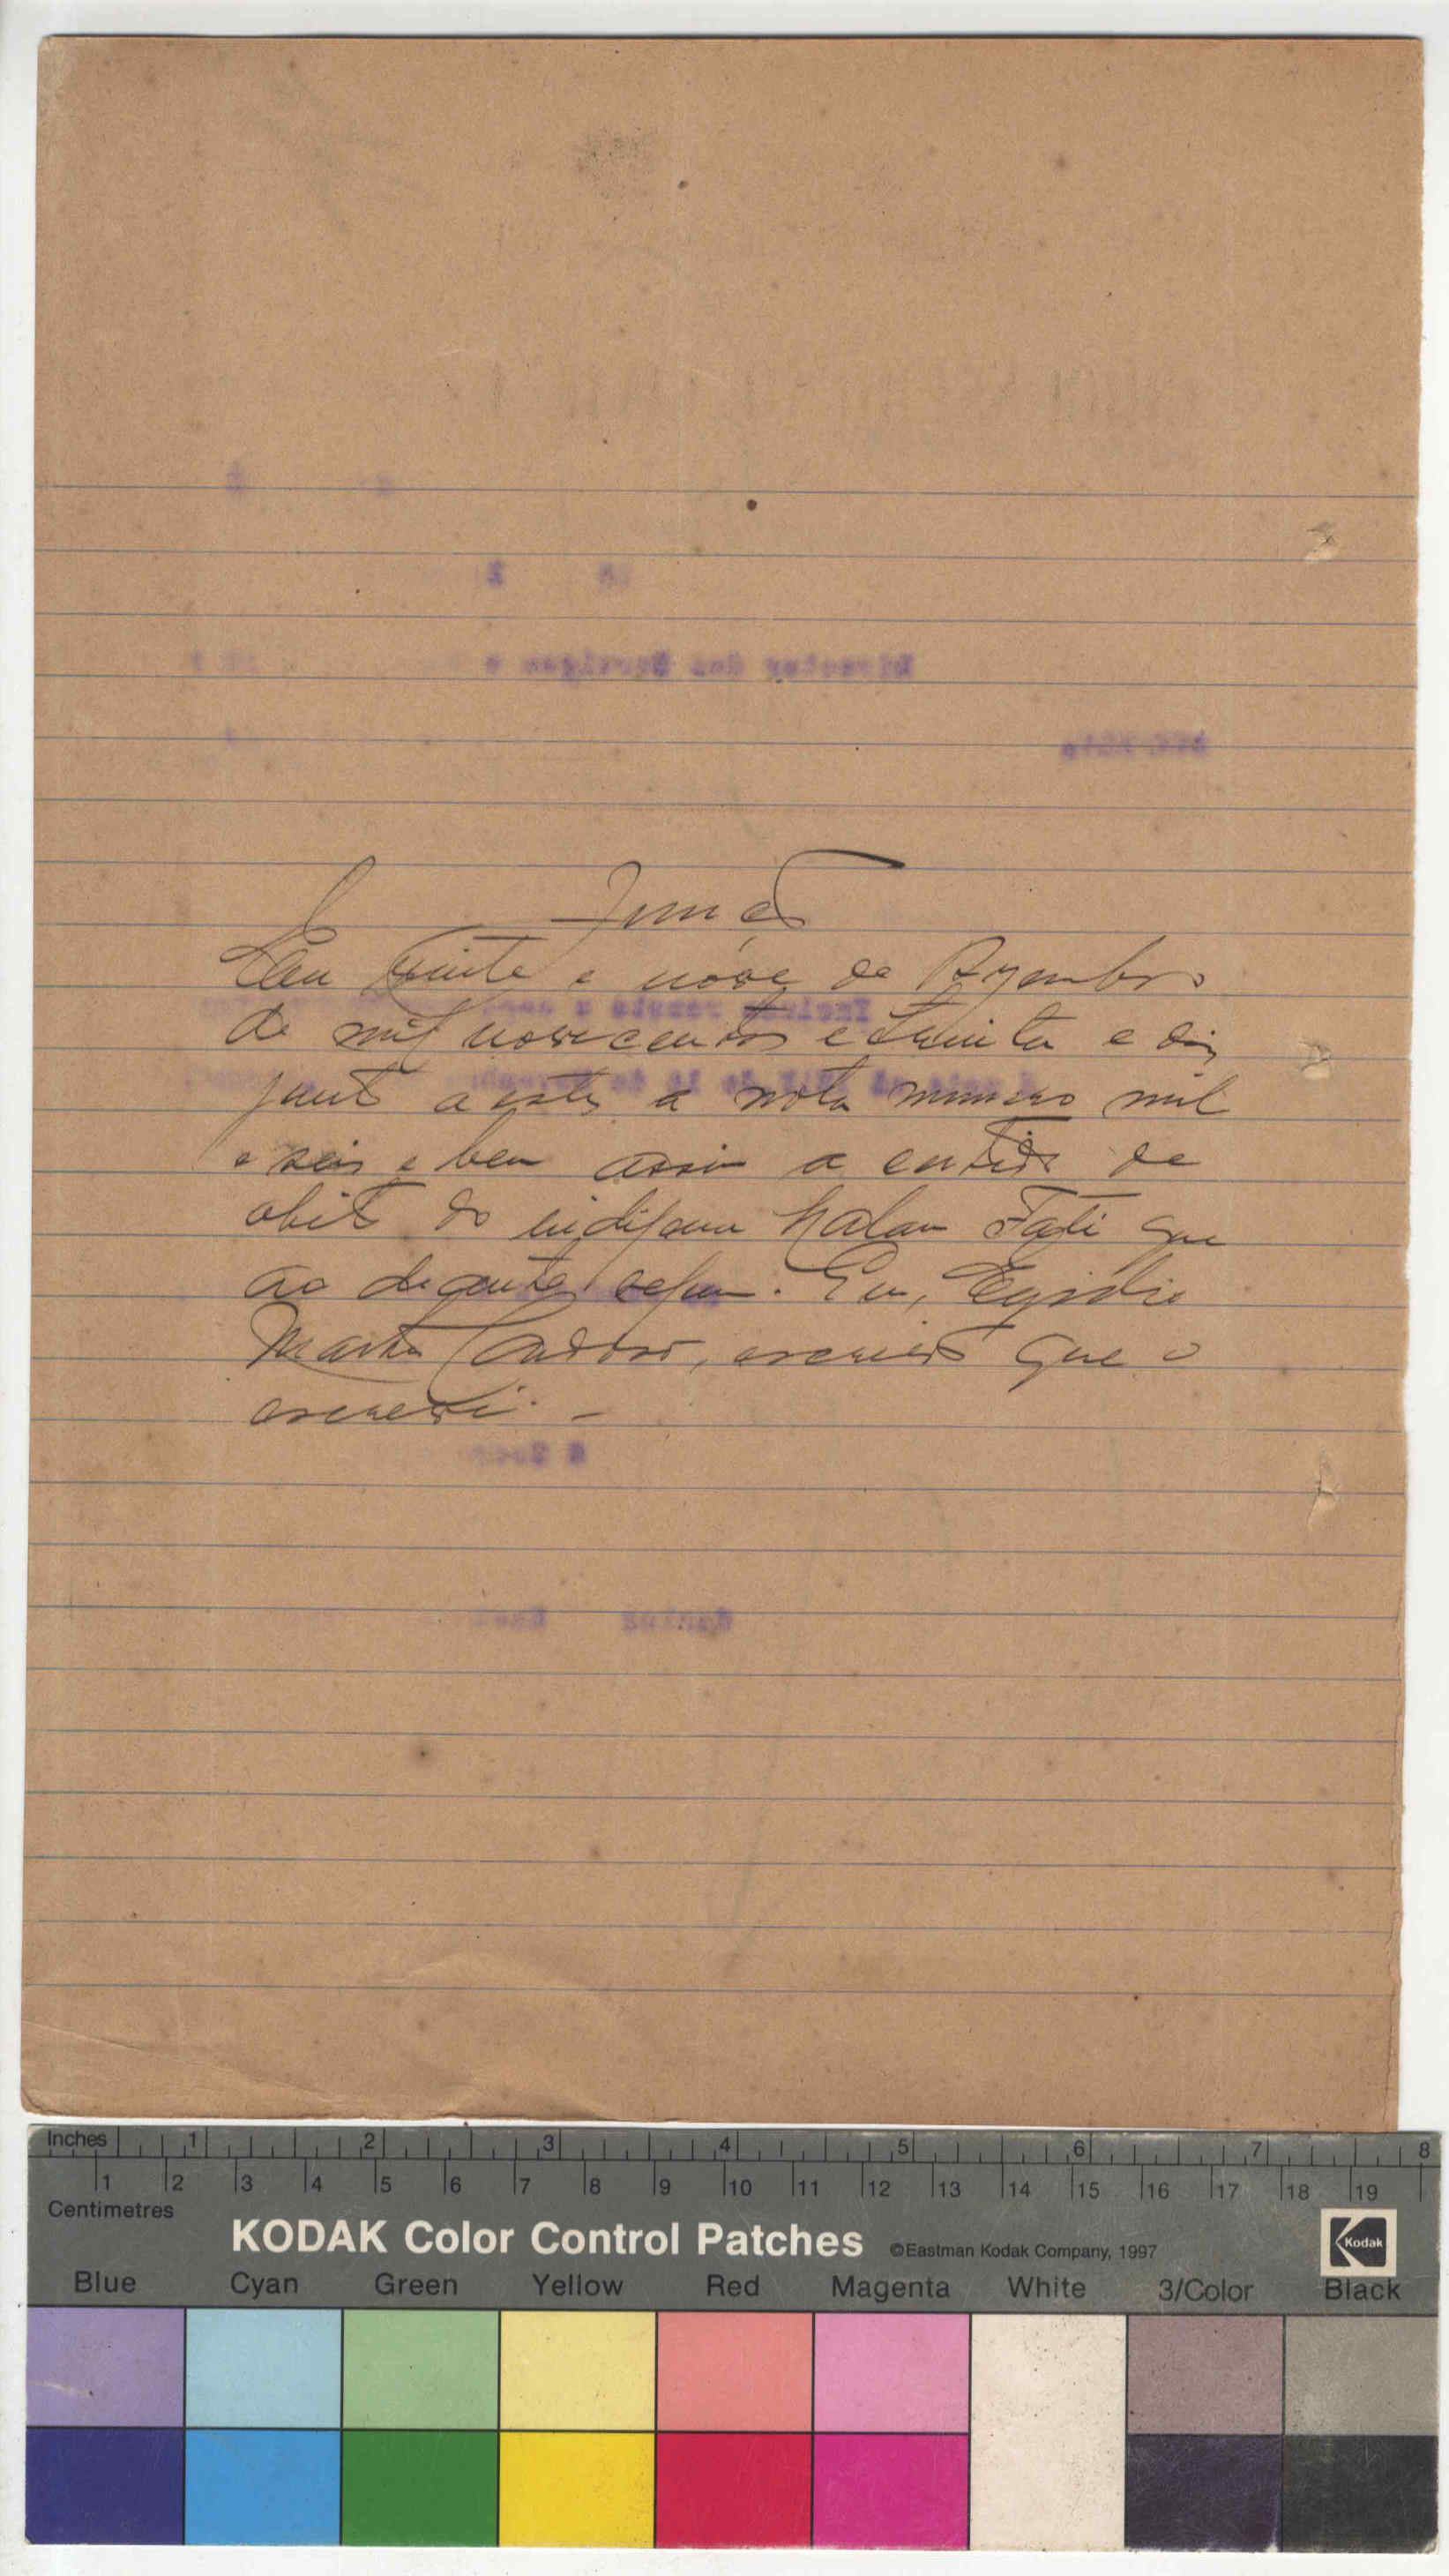 Juntada
Em vinte e nove de Dezembro
de mil novecentos e trinta e dois
junto a estes a nota numero mil
e seis e bem assim a certidão de
obito do indigena Malan Fati que
ao deante segue. Eu, Egidio
Martins Cardoso, escrivão que o
escrevi. –
Inches 1 2 3 4 5 6 7 8
1 2 3 4 5 6 7 8 9 10 11 12 13 14 15 16 17 18 19
Centimetres
KODAK Color Control Patches ©Eastman Kodak Company, 1997 Kodak
Blue Cyan Green Yellow Red Magenta White 3/Color Black